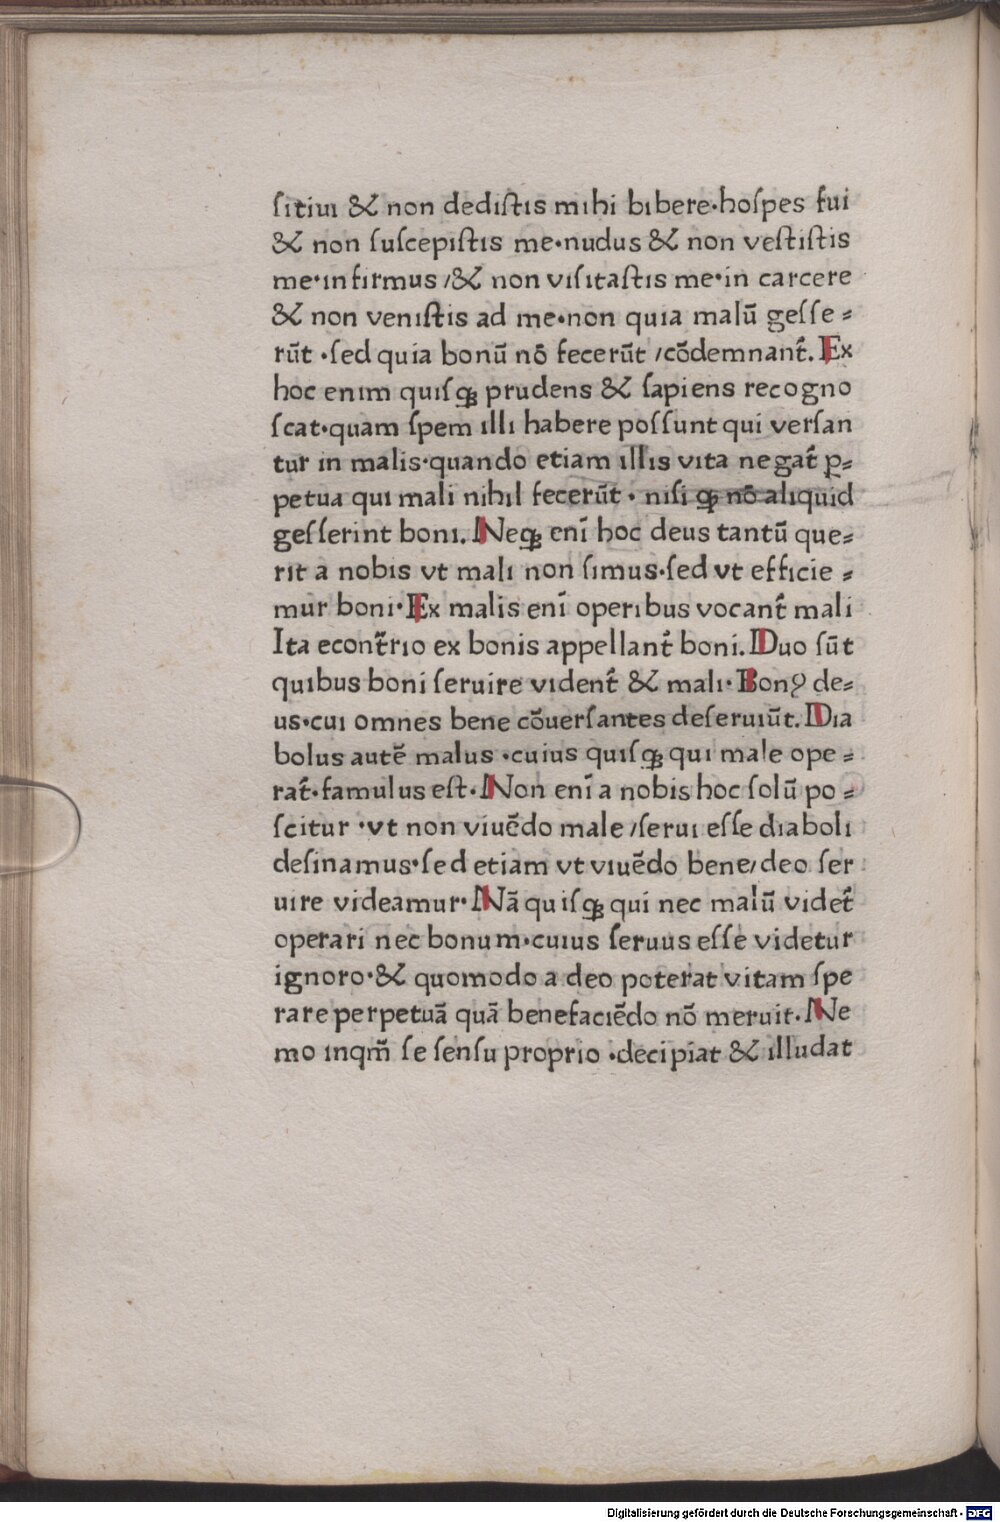 ſitiui & non dediſtis mihi bibere·hoſpes fui
& non ſuſcepiſtis me·nudus & non veſtiſtis
me·infirmus /& non viſitaſtis me·in carcere
& non veniſtis ad me·non quia malū geſſe⸗
rūt ·ſed quia bonū nō fecerūt /cōdemnant᷑. Ex
hoc enim quiſqꝫ prudens & ſapiens recogno
ſcat·quam ſpem illi habere poſſunt qui verſan
tur in malis·quando etiam illis vita negat᷑ ꝑ⸗
petua qui mali nihil fecerūt · niſi qꝫ nō aliquid
geſſerint boni. Neqꝫ enī hoc deus tantū que⸗
rit a nobis vt mali non ſimus·ſed vt efficie⸗
mur boni· Ex malis enī operibus vocant᷑ mali
Ita econt᷑rio ex bonis appellant᷑ boni. Duo ſūt
quibus boni ſeruire vident᷑ & mali· Bonꝰ de⸗
us·cui omnes bene cōuerſantes deſeruiūt. Dia
bolus autē malus ·cuius quiſqꝫ qui male ope⸗
rat᷑·famulus eſt· Non enī a nobis hoc ſolū po⸗
ſcitur ·vt non viuēdo male /ſerui eſſe diaboli
deſinamus·ſed etiam vt viuēdo bene/deo ſer
uire videamur· Nā quiſqꝫ qui nec malū videt᷑
operari nec bonum·cuius ſeruus eſſe videtur
ignoro·& quomodo a deo poterat vitam ſpe
rare perpetuā quā benefaciēdo nō meruit. Ne
mo inqm̄ ſe ſenſu proprio ·decipiat & illudat
Digitalisierung gefördert durch die Deutsche Forschungsgemeinschaft - DFG